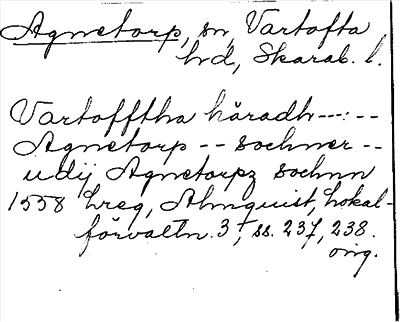 Agnetorp, sn, Vartofta
hd, Skarab. l.
Vartofftha häradh --:--
Agnetorp -- sochner --
udij Agnetorpz sochnn
1558 hreg, Almquist, Lokal-
förvaltn. 3, ss. 237, 238.
orig.